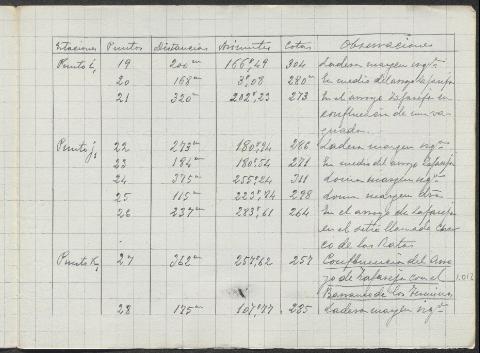 Estaciones Puntos Distancias Azimutes Cotas Observaciones
Punto i, 19 200m 166º,49 304 Ladera margen izqda
20 168m 3º,08 280m En medio del arroyo Zafareja
21 320m 202º,23 273 En el arroyo Zafareja en
confluencia de un va-
guada.
Punto j, 22 273m 180º,94 286 Ladera margen izqda
23 184m 180º,54 271 En medio del arroyo Zafareja
24 375m 255º,24 311 Loma margen izqda
25 115m 223º,84 298 Loma margen dcha
26 237m 283º,61 264 En el arroyo de Zafareja
en el sitio llamado Char-
co de las Ratas
Punto K, 27 362m 257º,62 257 Confluencia del Arro-
yo de Zafareja con el 1.012
Barranco de los
28 175m 107º,77 285 Ladera margen izqda